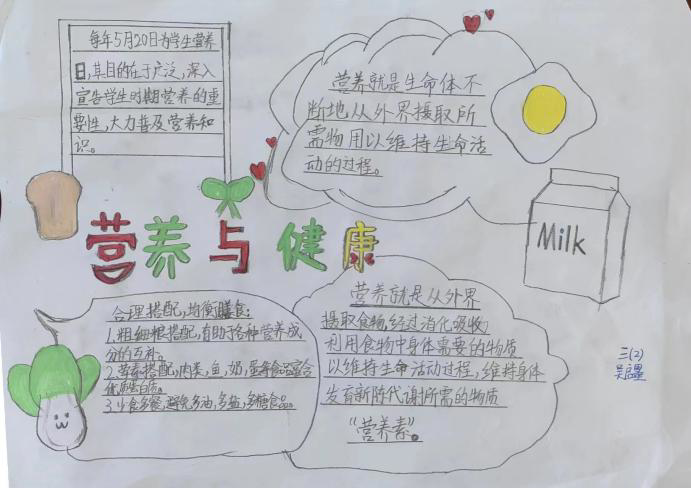 每年5月20日为学生营养
日，其目的在于广泛，深入
宣告学生时期营养的重
要性，大力普及营养知
识。
营养就是生命体不
断地从外界摄取所
需物用以维持生命活
动的过程。
Milk
营养与健康
合理搭配，均衡膳食：
1.粗细粮搭配，有助于各种营养成
分的互补。
2.营养搭配，肉类，鱼，奶，蛋等食品富含
优质蛋白质。
3.少食多餐，避免多油，多盐，多糖食品。
营养就是从外界
摄取食物，经过消化吸收，
利用食物中身体需要的物质
以维持生命活动过程，维持身体
发育新陈代谢所需的物质
“营养素”。
三(2)